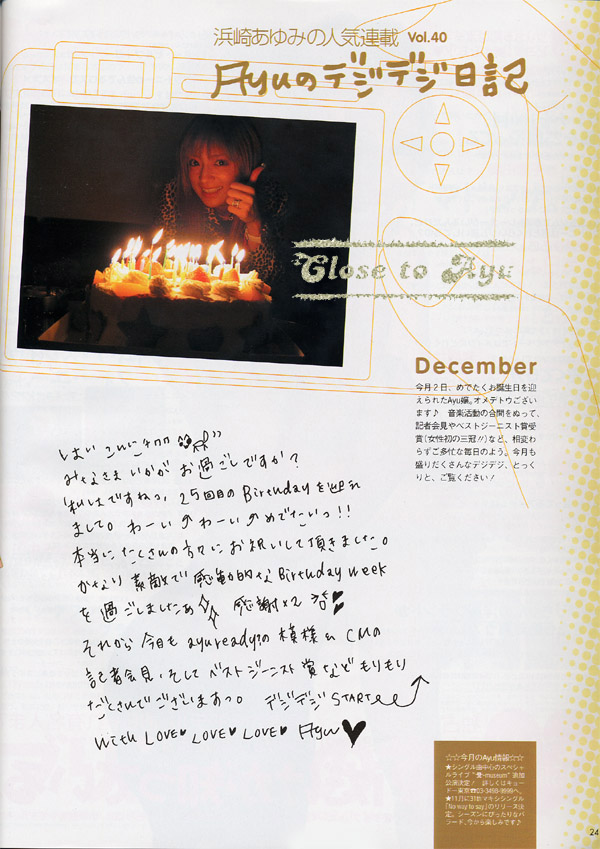 浜崎あゆみの人気連載 Vol.40
Ayuのデジデジ日記
Close to Ayu
December
今月２日、めでたくお誕生日を迎
えられたAyu嬢。オメデトウござい
ます♪ 音楽活動の合間をぬって、
記者会見やベストジーニスト賞受
賞(女性初の三冠!!)など、相変わ
らずご多忙な毎日のよう。今月も
盛りだくさんなデジデジ、とっく
りと、ご覧ください！
はい こんにちは
みなさま いかが お過ごしですか？
私はですねっ、25回目のBirthdayを迎え
まして。わーい わーい めでたいっ!!
本当に たくさんの方々に お祝いして頂きました。
かなり 素敵で 感動的な Birthday week
を 過ごしましたぁ 感謝×2
それから 今月も ayuready?の 模様 & CMの
記者会見、そして ベストジーニスト 賞など もりもり
だくさんでございまあっす。 デジデジ START
with LOVE♥ LOVE♥ LOVE♥ Ayu♥
☆☆今月のAyu情報☆☆
★シングル曲中心のスペシャ
ルライブ "-museum" 追加
公演決定！ 詳しくはキョー
ドー東京☎03-3498-9999へ。
★11月に31枚マキシシングル
「No way to say」のリリース決
定。シーズンにぴったりなバ
ラード、今から楽しみです♪
24